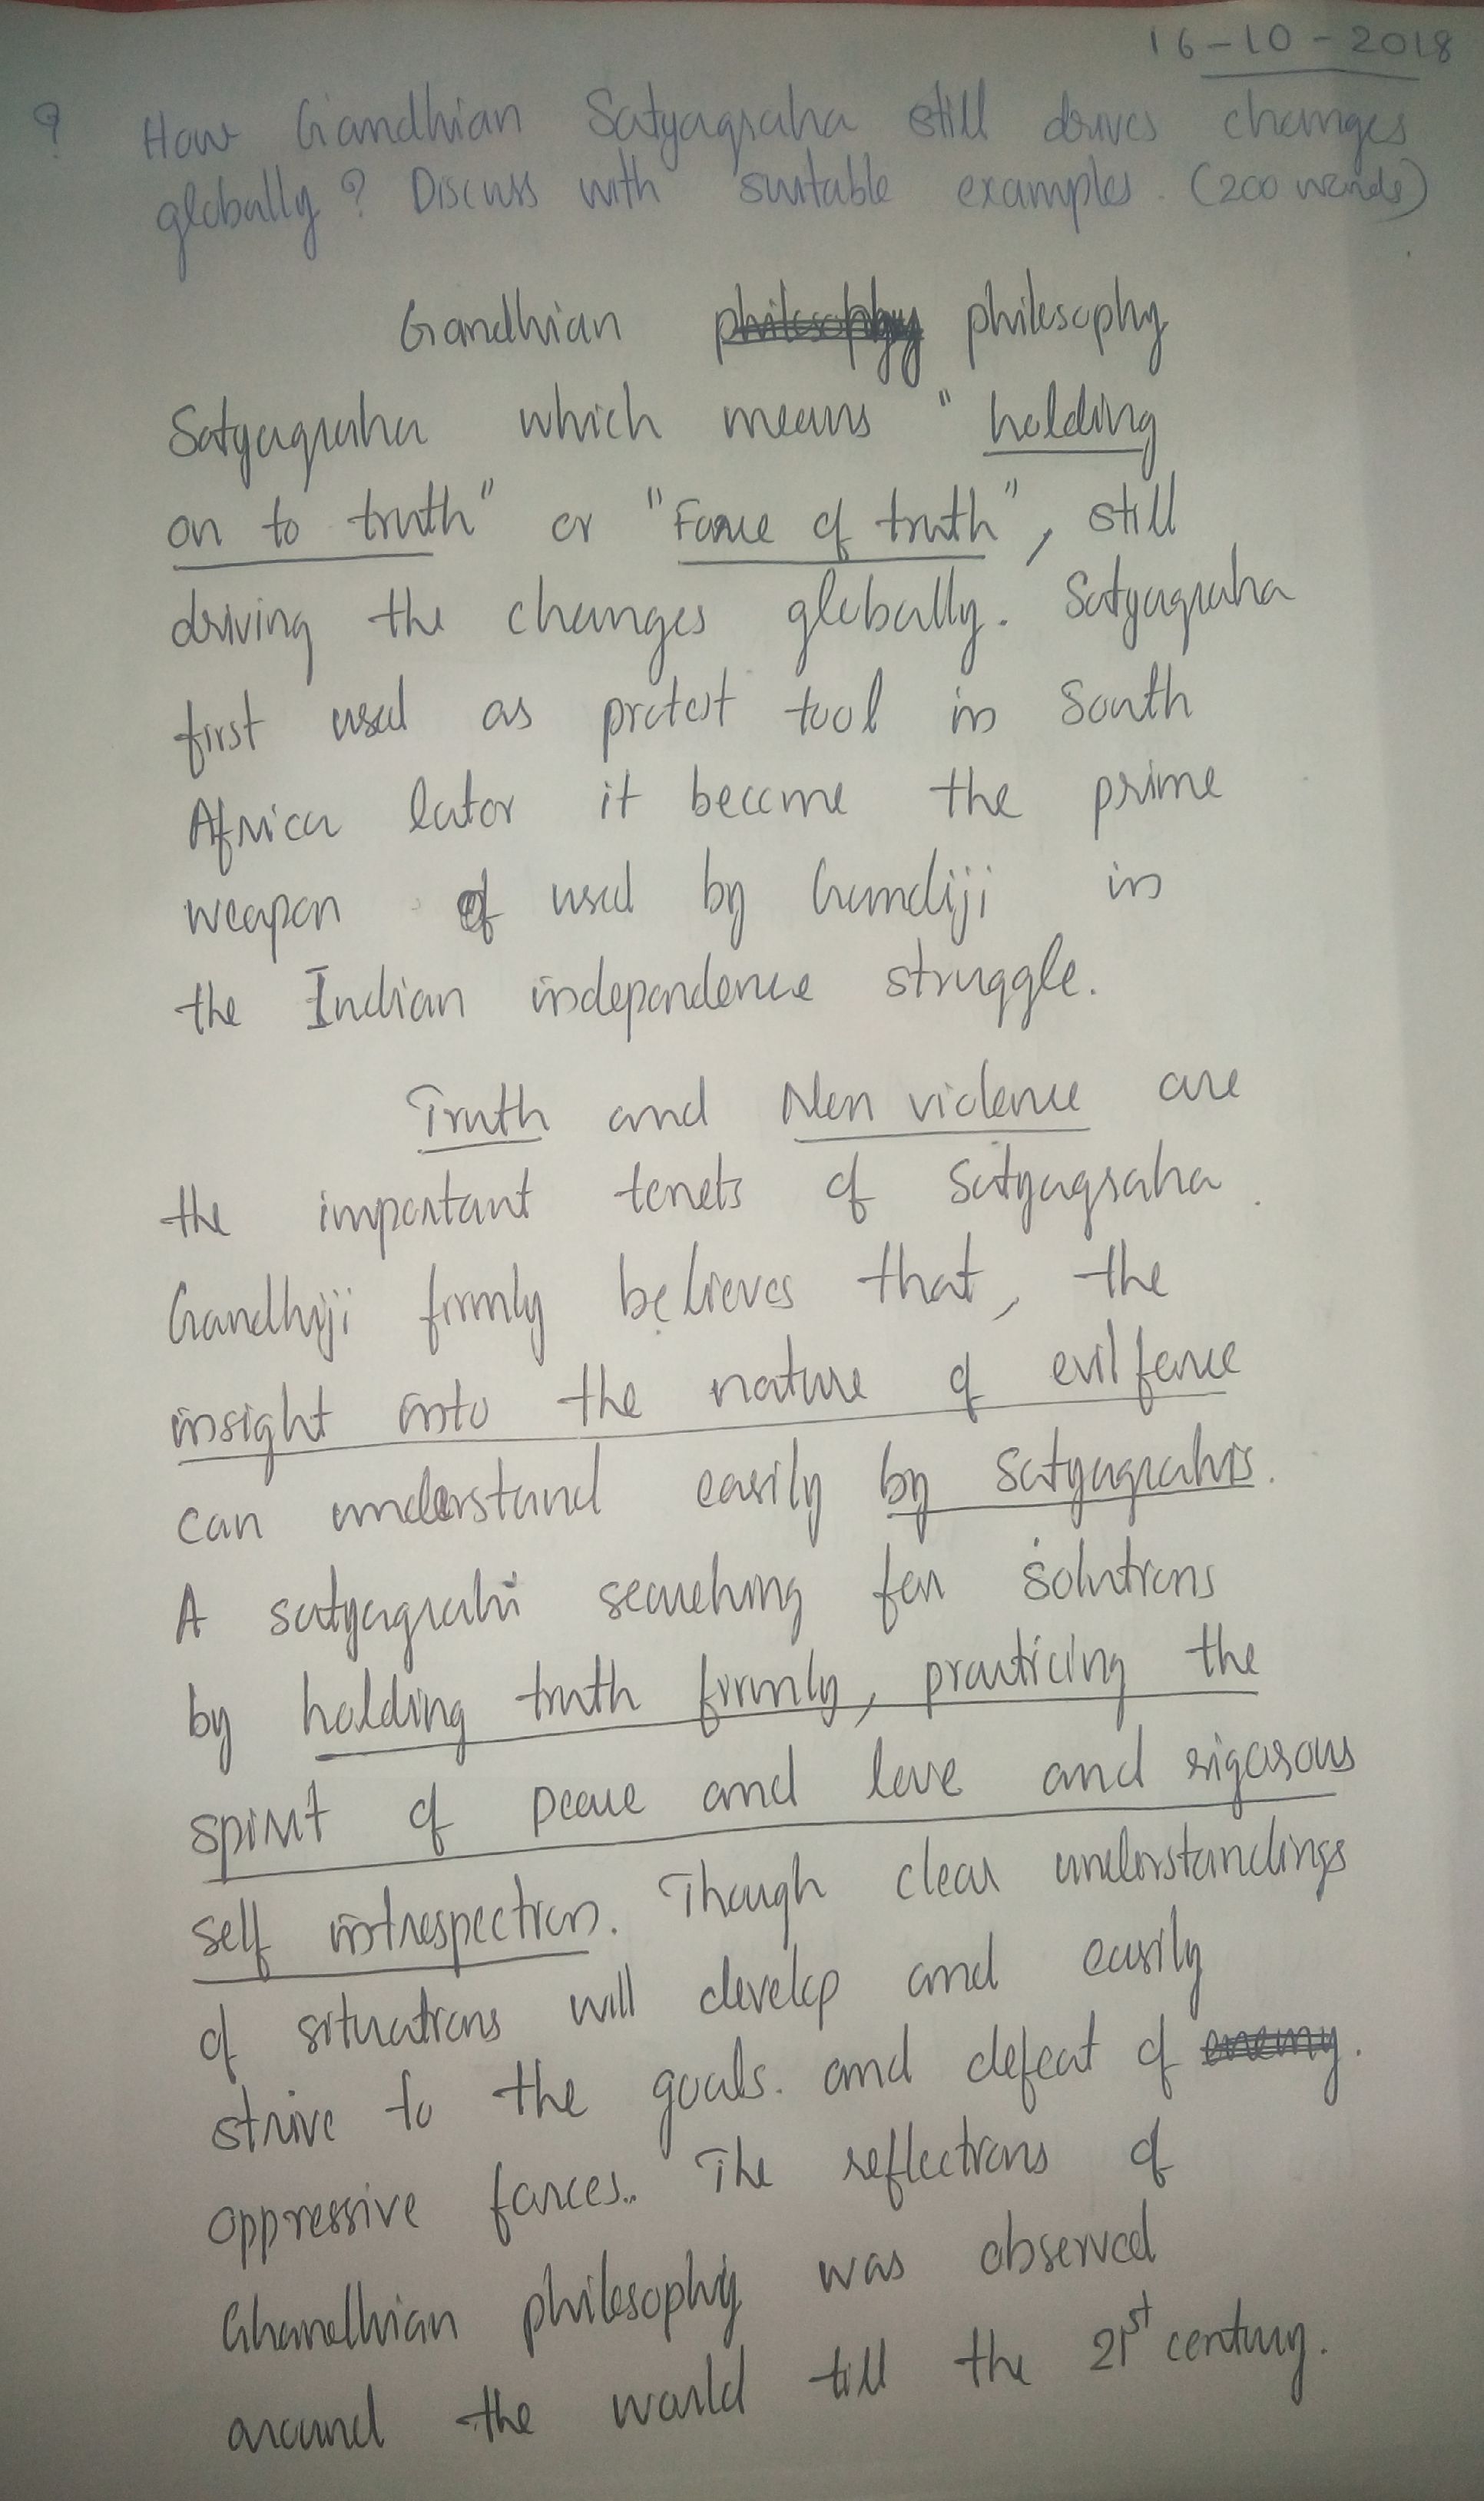 16-10-2018
? How Gandhian Satyagraha still drives changes
globally? Discuss with suitable examples. (200 words)
Gandhian philosophy philosophy
Satyagraha which means "holding
on to truth" or "Force of truth", still
driving the changes globally. Satyagraha
first used as protest tool in South
Africa later it become the prime
weapon of used by Gandiji in
the Indian independence struggle.
Truth and Non violence are
the important tenets of Satyagraha.
Gandhiji firmly believes that, the
insight into the nature of evil force
can understand easily by satyagrahis.
A satyagrahi searching for solutions
by holding truth firmly, practicing the
spirit of peace and love and rigorous
self introspection. Though clear understandings
of situations will develop and easily
strive to the goals. and defeat of enemy.
oppressive forces.. The reflections of
Ghandhian philosophy was observed
around the world till the 21st century.